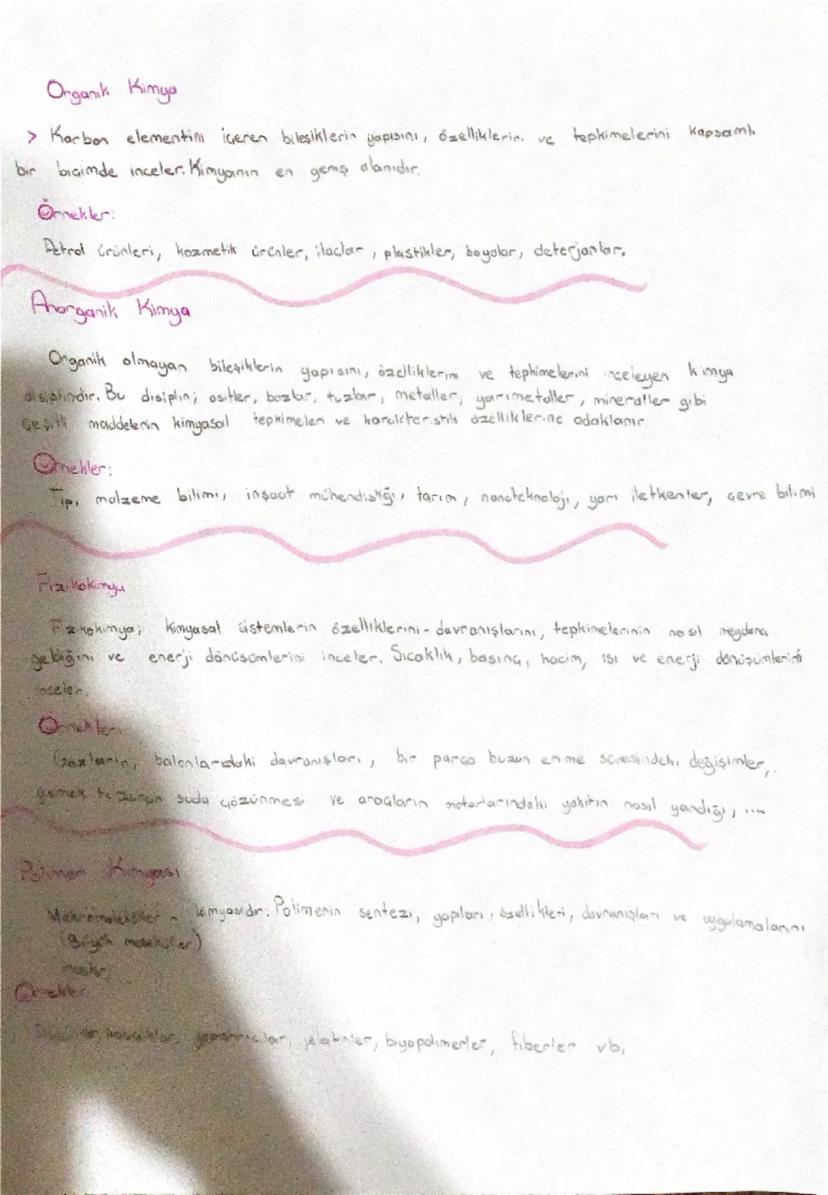 Organik Kimya
> Karbon elementini içeren bileşiklerin yapısını, özelliklerin. ve tepkimelerini kapsamlı
bir biçimde inceler. Kimyanın en geniş alanıdır.
Örnekler:
Petrol ürünleri, kozmetik ürünler, ilaçlar, plastikler, boyalar, deterjanlar.
Anorganik Kimya
Organik olmayan bileşiklerin yapısını, özelliklerini ve tepkimelerini inceleyen kimya
disiplindir. Bu disiplin; asitler, bazlar, tuzlar, metaller, yarımetaller, mineraller gibi
Çeşitli maddelerin kimyasal tepkimeleri ve karakteristik özelliklerine odaklanır.
Örnekler:
Tıp, malzeme bilimi, inşaat mühendisliği, tarım, nanoteknoloji, yarı iletkenler, çevre bilimi
Fizikokimya
Fizikokimya; kimyasal sistemlerin özelliklerini-davranışlarını, tepkimelerinin nasıl meydana
geldiğini ve enerji dönüşümlerini inceler. Sıcaklık, basınç, hacim, ısı ve enerji dönüşümlerini
inceler.
Örnekler:
Gazların, balonlardaki davranışları, bir parça buzun erime süresindeki değişimler,
yemek tuzunun suda çözünmesi ve araçların motorlarındaki yakıtın nasıl yandığı, ....
Polimer Kimyası
Makromoleküller kimyasıdır. Polimerin sentezi, yapıları, özellikleri, davranışları ve uygulamalarını
(Büyük moleküller)
inceler.
Örnekler:
yapıştırıcılar, jelatinler, biyopolimerler, fiberler vb.